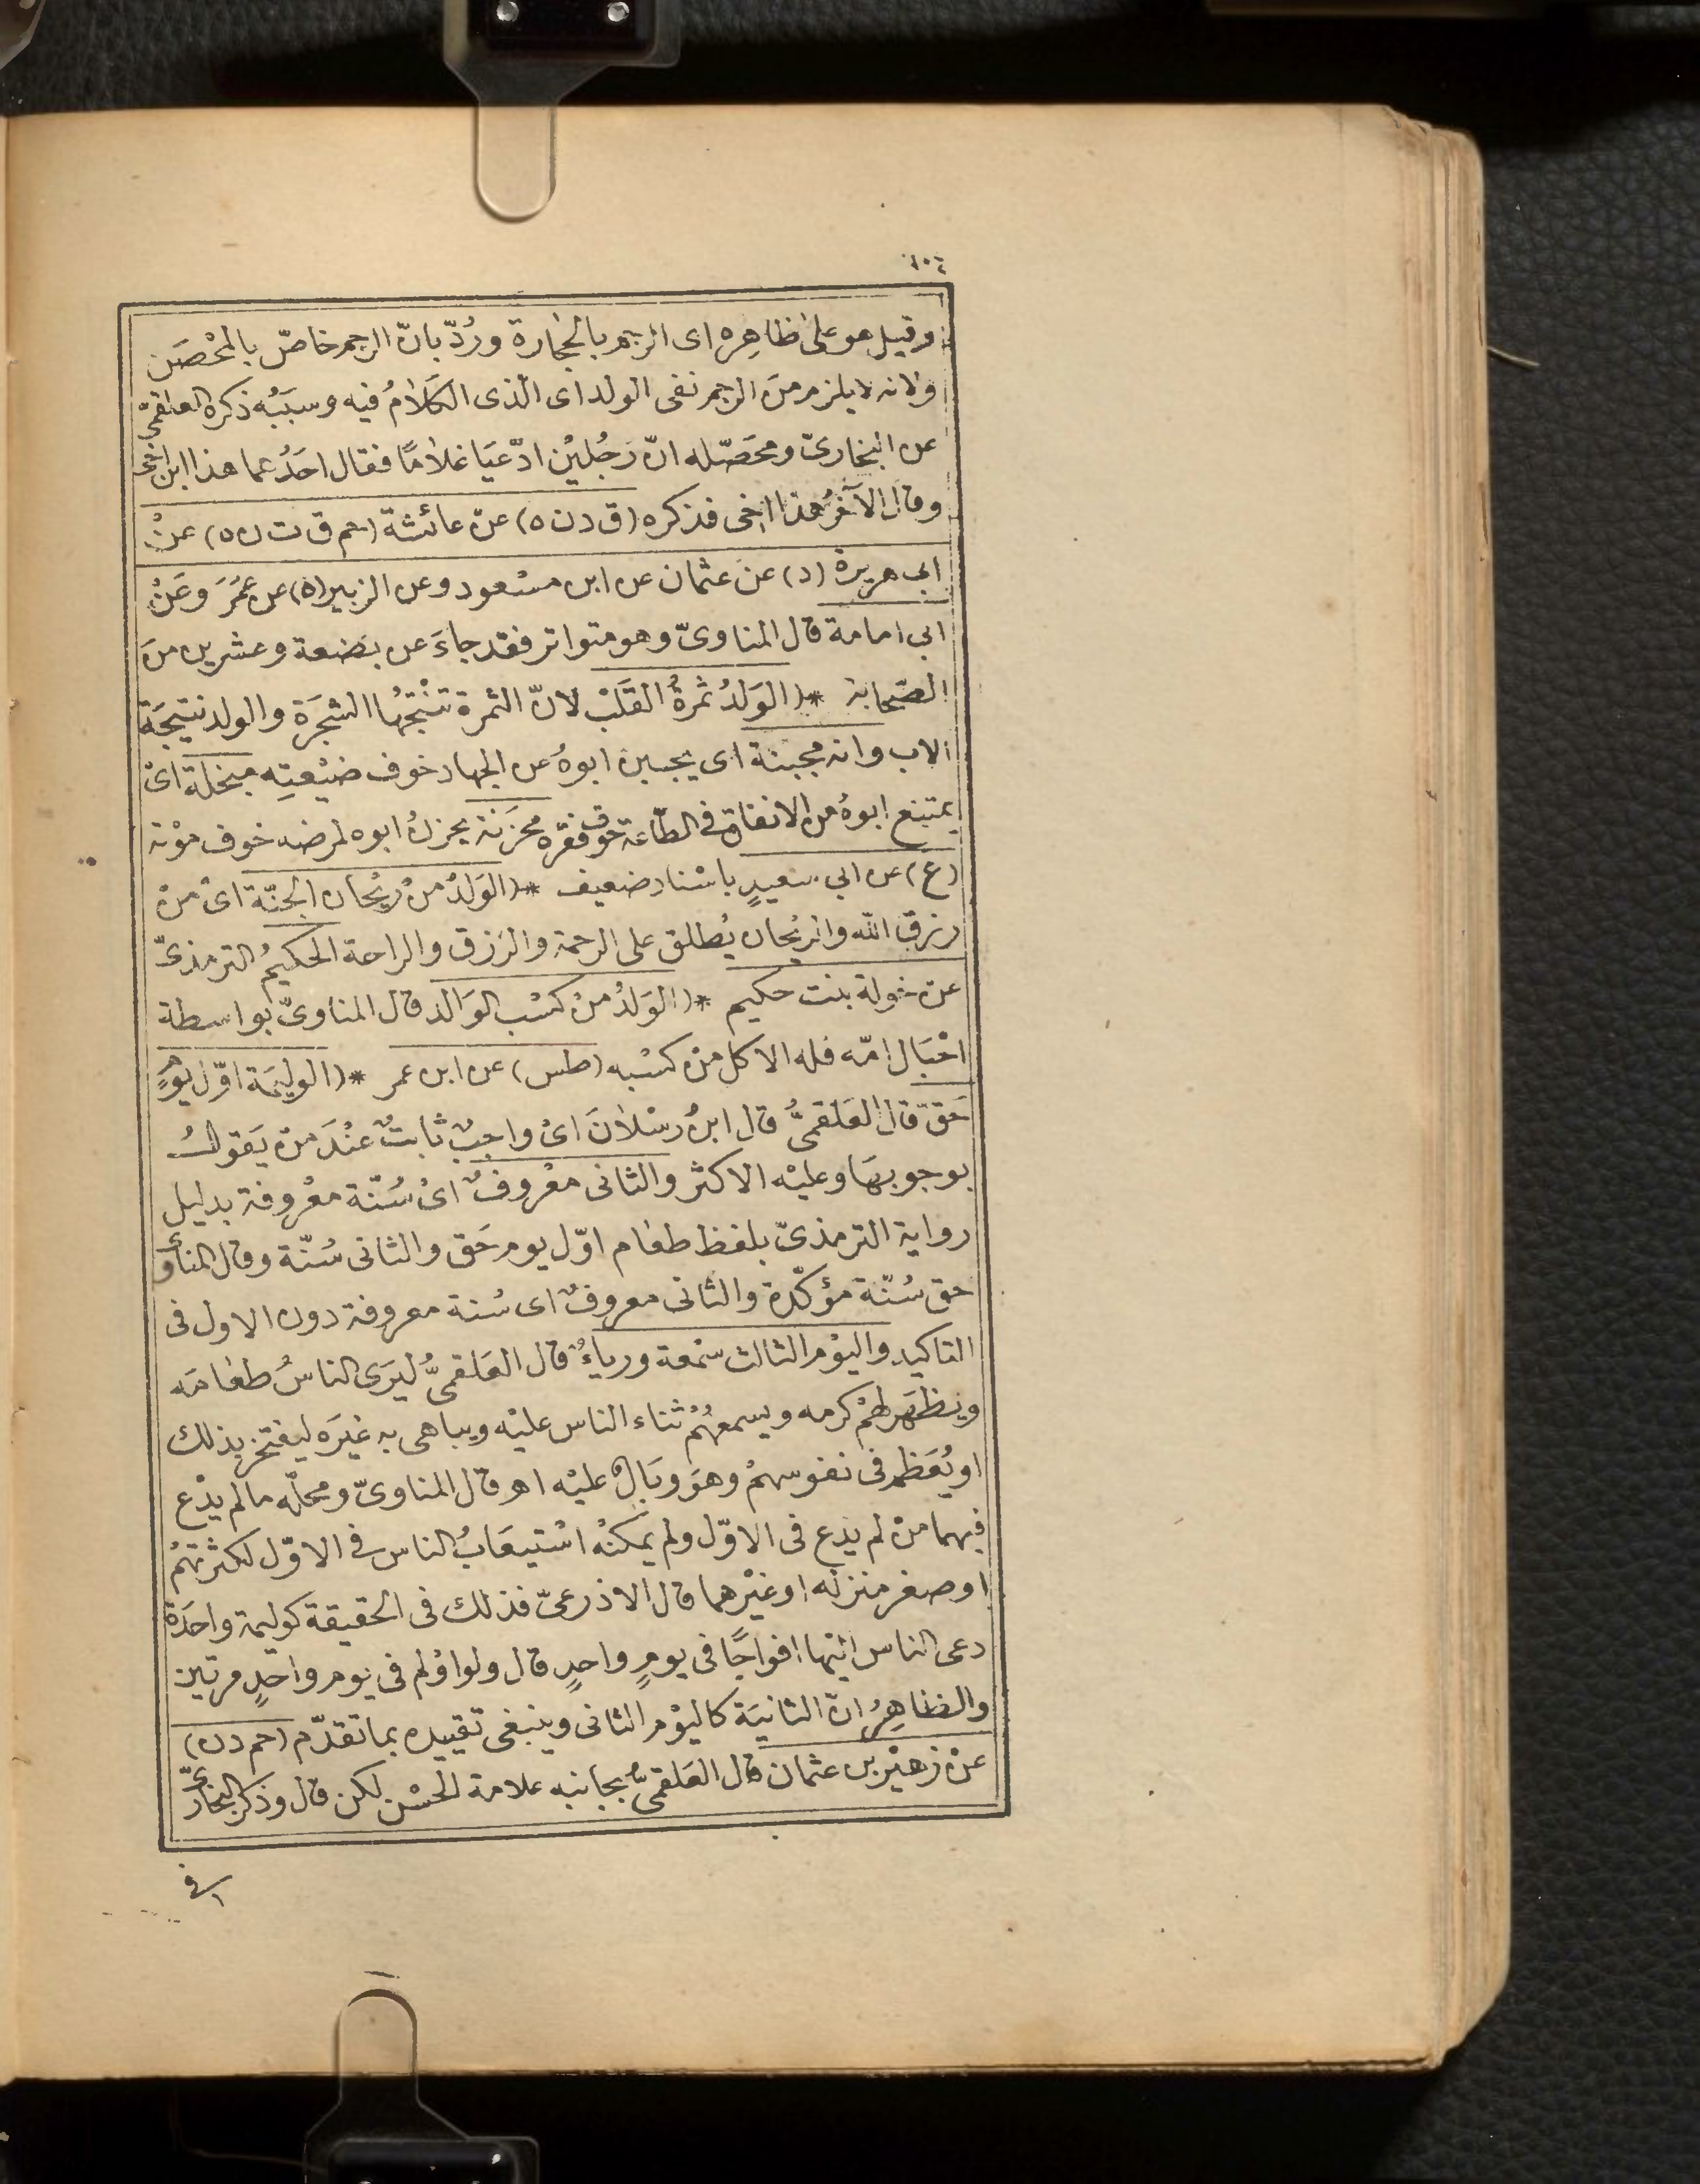 ٤٠٦
وقيل هو على ظاهِره اى الرجم بالحجارة ورُدّ بانّ الرجم خاصّ بالمحْصَن
ولانه لا يلزم منَ الرجم نفى الولد اى الذى الكلامُ فيه وسبَبُه ذكره العلقمىّ
عن البخارىّ ومحَصّله انّ رَجُليْن ادّعَيَا غلامًا فقال احَدُهما هذا ابن اخى
وقال الآخَرُ هذا اخى فذكره (ق د ن ه) عنْ عائشة (حم ق ت ن ه) عنْ
ابى هريرة (د) عنَ عثمان عن ابن مسْعود وعن الزبير (ه) عن عمَرَ وعَنْ
ابى امامة قال المناوىّ وهو متواتر فقد جاءَ عن بضعة وعشرين منَ
الصّحابة * (الوَلدُ ثمرةُ القَلْب لانّ الثمرة تنْتِجُهَا الشجَرَة والولد نتيجَة
الاب وانه مجبنة اى يجبن ابوهُ عن الجهاد خوف ضيْعتِه مبخلة اىْ
يمتنع ابوهُ من الانفاق فى الطّاعة خوف فقره محزَنَة يحزنُ ابوه لمرضه خوف موْته
(ع) عن ابى سعيدٍ باسْناد ضعيف * (الوَلدُ منْ ريْحان الجنّة اىْ منْ
رزق الله والريْحان يُطلق على الرحمة والرّزق والراحة الحكيمُ الترمذىّ
عن خولة بنت حكيم * (الوَلدُ منْ كسْب الوَالد قال المناوىّ بواسطة
احْبَال امّه فله الاكل منْ كسْبه (طس) عن ابن عمر * (الوليمَة اوّل يوْمٍ
حَقّ قال العَلقمىُّ قال ابنُ رسْلانَ اىْ واجبٌ ثابتٌ عنْدَ منْ يَقولُ
بوجوبهَا وعليْه الاكثر والثانى معْروفٌ اىْ سُنّة معْروفة بدليل
رواية الترمذىّ بلفظ طعام اوّل يوم حَق والثانى سُنّة وقال المناوىّ
حق سُنّة مؤكّدة والثانى معروفٌ اى سُنة معروفة دون الاول فى
التاكيد واليوْم الثالث سمْعة ورياءٌ قال العَلقمىُّ ليَرَى الناسُ طعَامَه
ويظهَر لهُمْ كرمه ويسمعهُمْ ثناء الناس عليْه ويباهى به غيْرَه ليفتخر بذلك
او يُعَظم فى نفوسهمْ وهوَ وبَالٌ عليْه اهـ قال المناوىّ ومحلّه ما لم يدْع
فيهما منْ لم يدْع فى الاوّل ولم يمكنْهُ اسْتيعَابُ الناس فى الاوّل لكثرتهمْ
او صغر منزله او غيْرهما قال الاذرعىّ فذلك فى الحقيقة كوليمة واحَدة
دعى الناس اليْها افواجًا فى يومٍ واحدٍ قال ولو اوْلم فى يوم واحَدٍ مرتين
والظاهِرُ انّ الثانيَة كاليوْم الثانى وينبغى تقييده بما تقدّم (حم د ن)
عنْ زهيْر بن عثمان قال العَلقمىُّ بجانبه علامة الحسْن لكن قال وذكر البخارىّ
فى